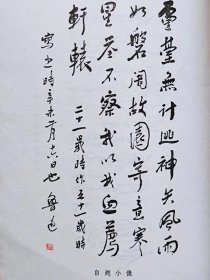 靈臺無計逃神矢風雨
如磐闇故園寄意寒
星荃不察我以我血薦
軒轅
二十一歲時作五十一歲時
寫之時辛未二月十六日也 魯迅
自題小像